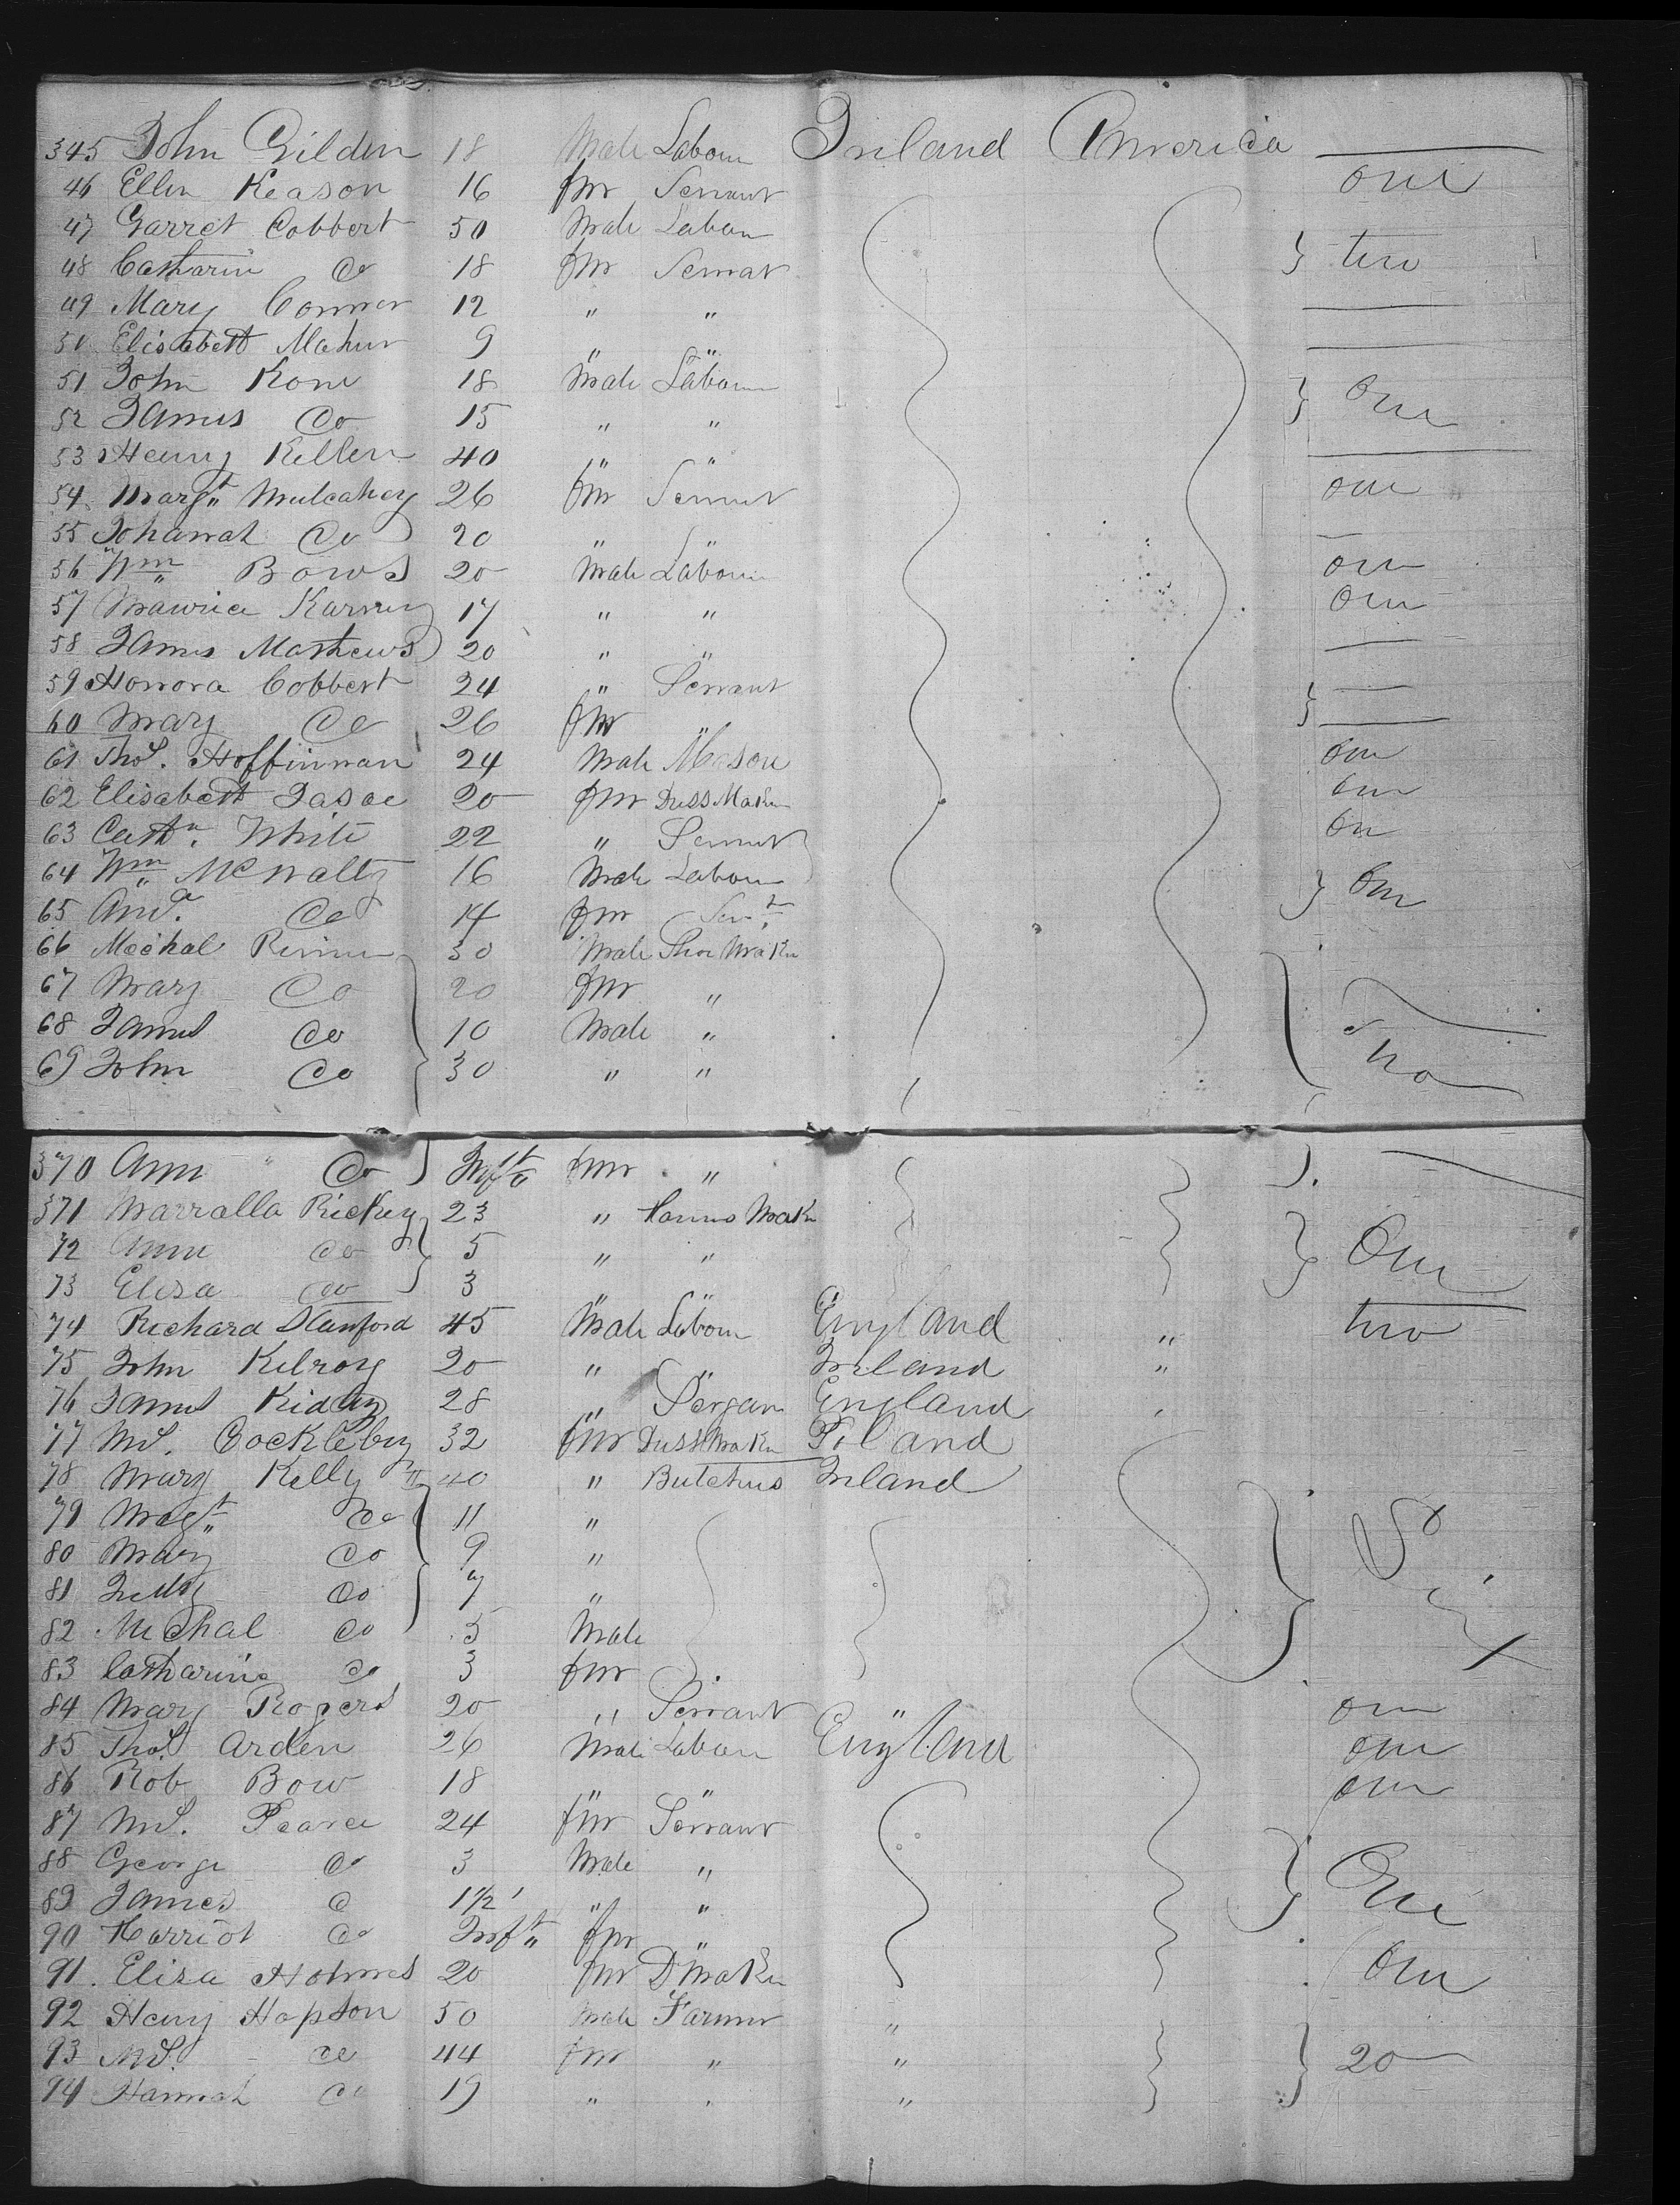 345 John Gilden 18 Male Labour Ireland America —
46 Ellen Keason 16 fm Servant one
47 Garret Cobbert 50 Male Labour
48 Catharin Do 18 fm Servant } two
49 Mary Connor 12 " " —
50 Elisabeth Maher 9 " " —
51 John Kone 18 Male Labour
52 James Do 15 " " } One
53 Henry Killen 40 " " —
54 Margt Mulcahey 26 fm Servnt one
55 Johanah Do 20 " " —
56 Wm Bows 20 Male Labour one
57 Maurice Karney 17 " " One
58 James Mathews 20 " " —
59 Honora Cobbert 24 " Servant } —
60 Mary Do 26 fm " —
61 Thos. Hoffinman 24 Male Mason one
62 Elisabeth 20 fm DressMaker one
63 Cathn. White 22 " Servnt on
64 Wm McNalty 16 Male Labour
65 Do 14 fm Servt } One
66 Meehal 30 Male Shoe Maker
67 Mary Do 20 fm "
68 James Do 10 Male "
69 John Do 30 " "
370 Ann Do Inft fm "
371 Rickey 23 " Maker
72 Ann Do 5 " "
73 Elisa Do 3 " " } One
74 Richard Stanford 45 Male Labour England " two
75 John Kilroy 20 " " Ireland "
76 James 28 " England "
77 Ms. Cockleby 32 fm DressMaker Poland
78 Mary Kelly 40 " Butchers Ireland
79 Magt Do 11 "
80 Mary Do 9 "
81 Do 7 "
82 Michal Do 5 Male
83 Catharine Do 3 fm
84 Mary Rogers 20 " Servant " one
85 Thos Arden 26 Male Labour England one
86 Rob Bow 18 " " one
87 Ms. Pearce 24 fm Servant
88 George Do 3 Male "
89 James Do 1 1/2 " " } One
90 Harriot Do Inft fm "
91. Elisa Holmes 20 fm DMaker One
92 Heny Hopson 50 Male Farmer "
93 Ms. Do 44 fm " " } 20
94 Hannah Do 19 " " "